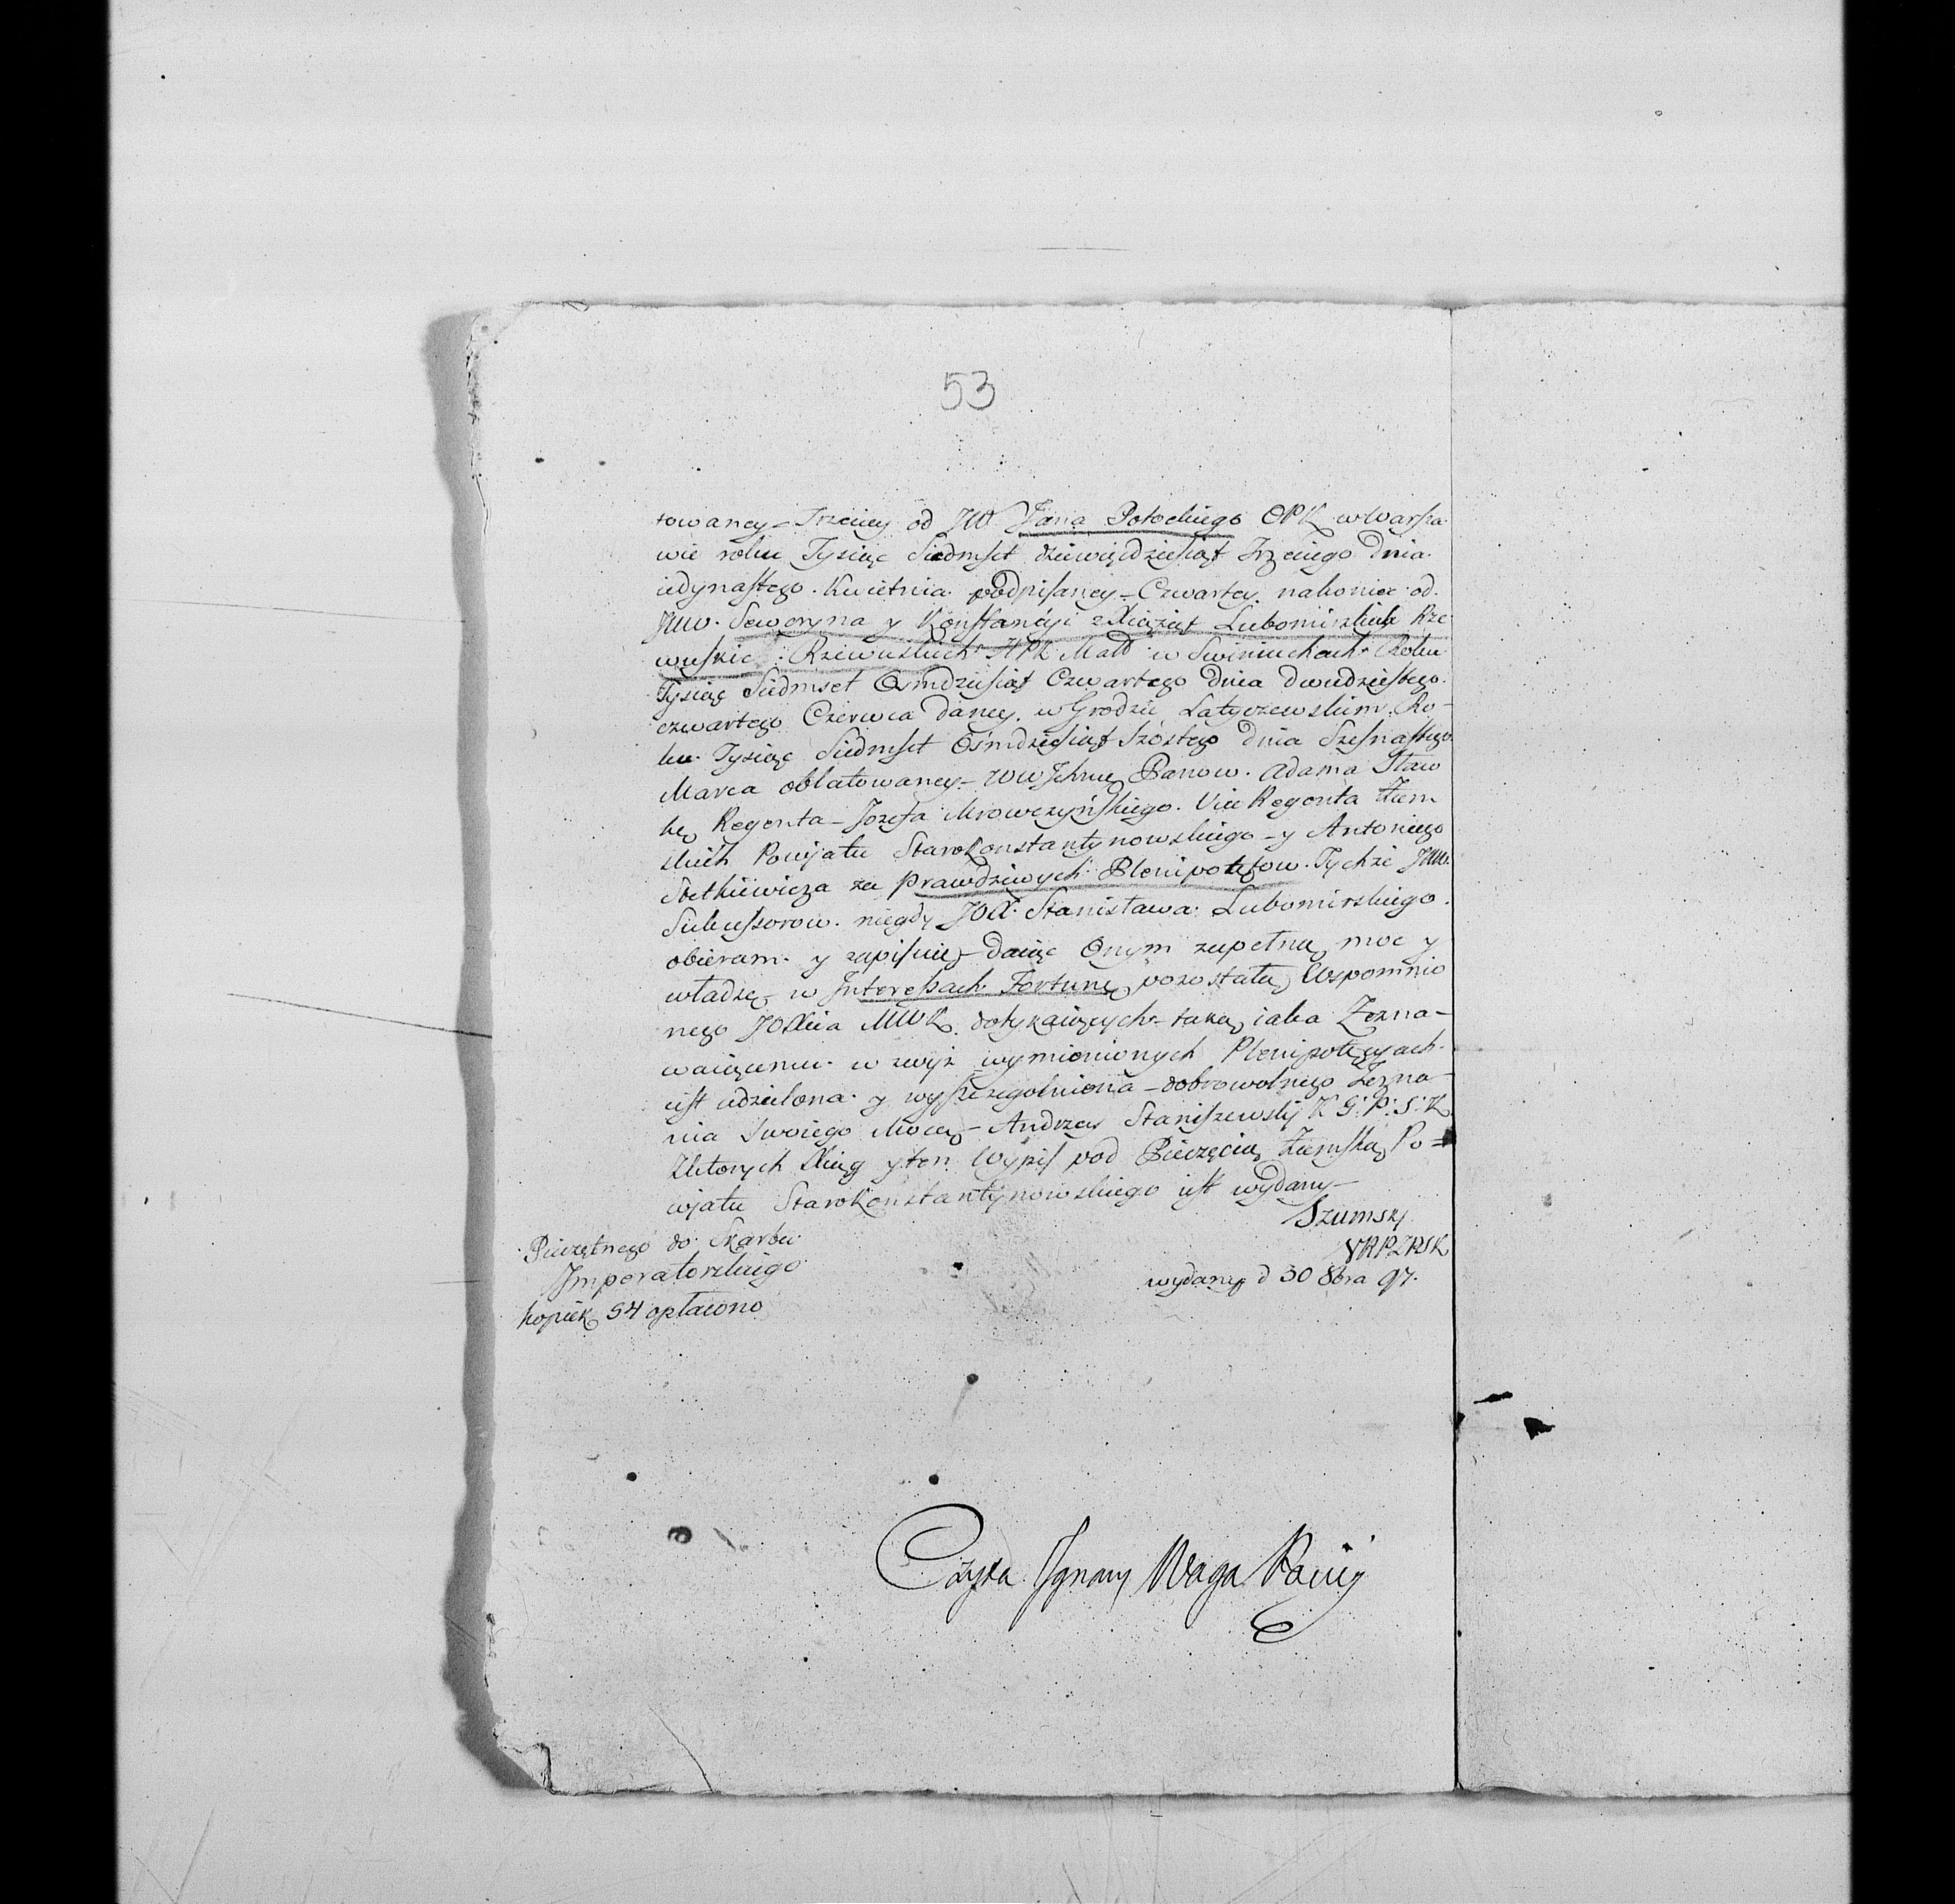 53
towaney – Trzeciey od JW. Jana Potockiego OPK w Warsza
wie roku Tysiąc Siedmset dziewięćdziesiąt Trzeciego Dnia
iedynastego Kwietnia podpisaney – Czwartey nakoniec od
JWW. Seweryna y Konstancyi z Xiążąt Lubomirskich Rze
wuskic: Rzewuskich HPK Małż w Swiniuchach Roku
Tysiąc Siedmset Osmdziesiąt Czwartego Dnia Dwudziestego
czwartego Czerwca Daney. w Grodzie Latyczewskim Ro-
ku Tysiąc Siedmset Ośmdziesiąt Szóstego Dnia Szesnastego
Marca oblatowaney – WW Panow. Adama Staw
kę Regenta – Jozefa Mrowczyńskiego. Vice Regenta Ziem
skich Powiatu Starokonstantynowskiego – y Antoniego
Stetkiewicza za prawdziwych Plenipotętow. Tychże JWW.
Sukcessorow. niegdy JOX. Stanisława Lubomirskiego.
obieram y zapisuię – Daiąc Onym zupełną moc y
władzę w Interessach Fortunę pozostałą Wspomnio
nego JOXcia MWK. dotykaiących – taką iaka Zezna-
waiącemu w zwyż wymienionych Plenipotęcyach
iest udzielona y wyszczegolniona – dobrowolnego Zezna-
nia Swoiego Mocą – Andrzey Staniszewskj K G: P: S: K
Zktorych Xiąg y ten Wypis pod Pieczęcią Ziemską Po=
wjatu Starokonstantynowskiego iest wydany –
Szumskj
VRPZPSK
Pieczętnego do Skarbu
Imperatorskiego
kopiek 54 opłacono
wydany d 30 8bra 97.
Czyta Ignacy Waga